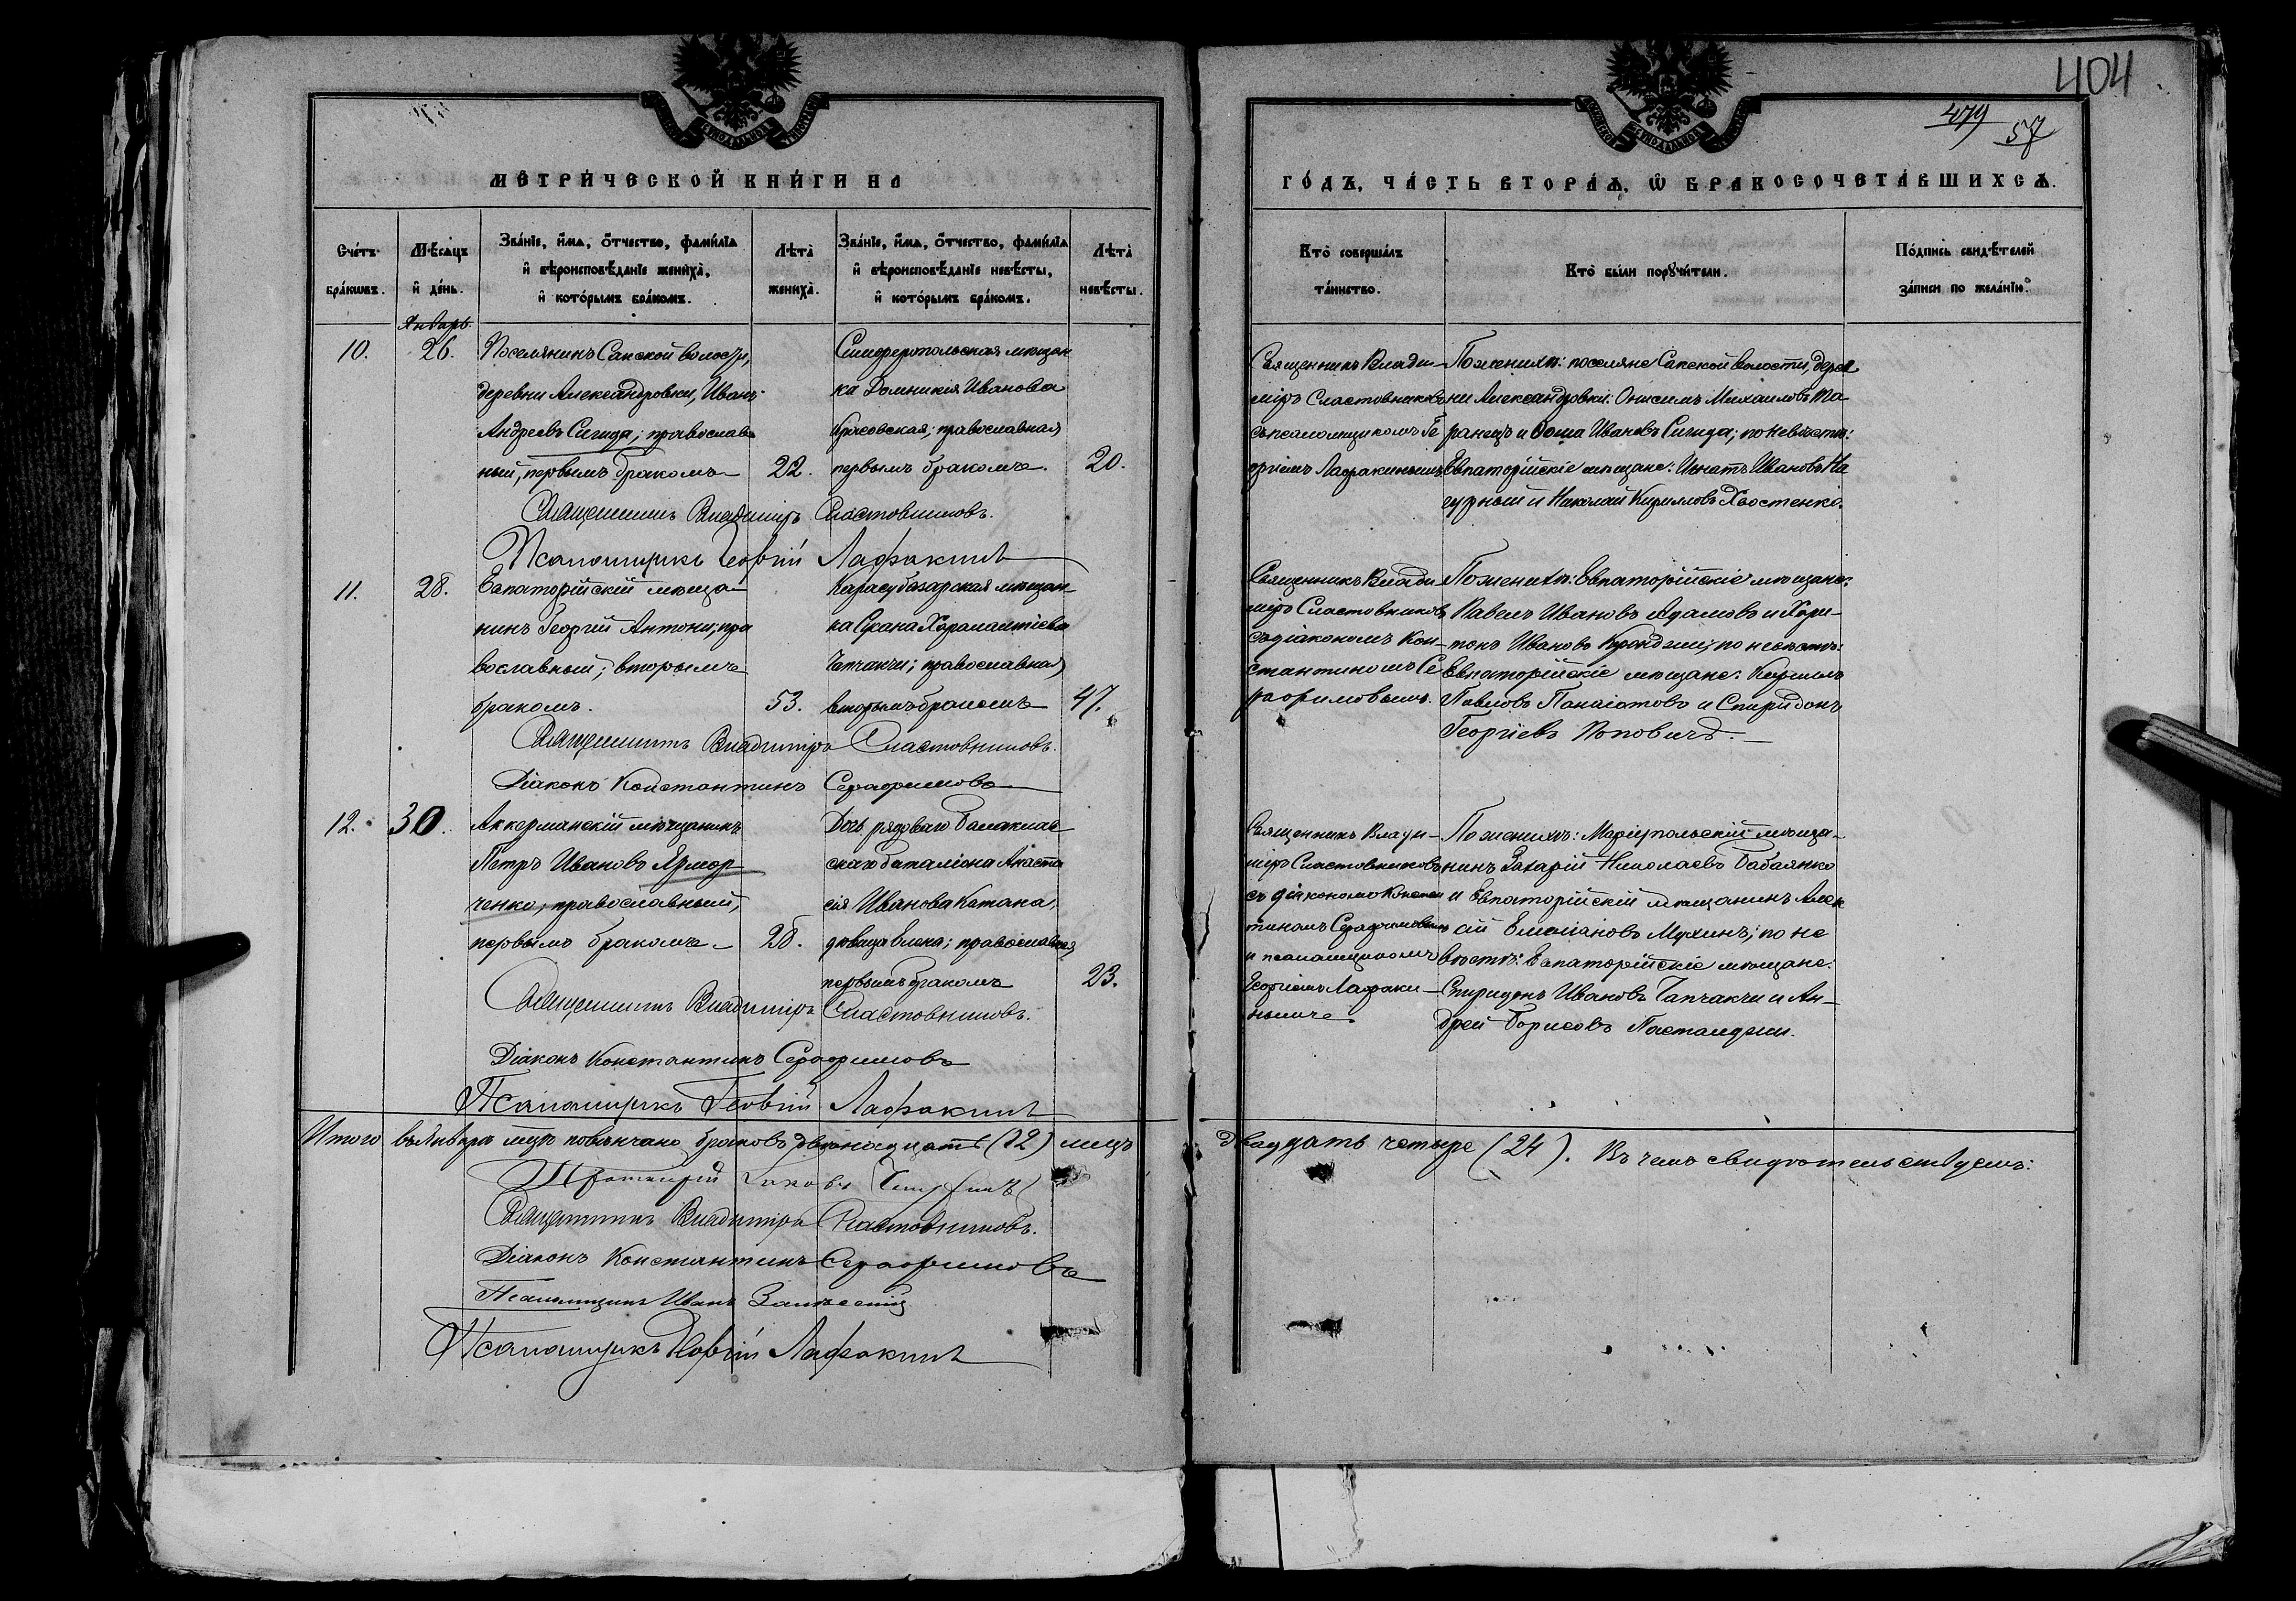 404
479
57
МЕТРИ́ЧЕСКОЙ КНИ́ГИ НА
ГО́ДЪ, ЧА́СТЬ ВТОРА́Ѧ, Ѽ БРАКОСОЧЕТА́ВШИХСѦ.
Сче́тъ бра́кѡвъ.
Мѣ́сѧцъ и҆ де́нь.
Зва́нїе, и҆́мѧ, ѻ҆́тчество, фами́лїѧ
и҆ вѣроисповѣ́данїе жениха̀,
и҆ кото́рымъ бра́комъ.
Лѣта̀ жениха̀.
Зва́нїе, и҆́мѧ, ѻ҆́тчество, фами́лїѧ
и҆ вѣроисповѣ́данїе невѣ́сты,
и҆ кото́рымъ бра́комъ.
Лѣта̀ невѣ́сты.
Кто̀ соверша́лъ
та́инство.
Кто̀ бы́ли порꙋчи́тели.
По́дпись свидѣ́телей
за́писи по жела́нїю.
Январь.
10.
26.
Поселянинъ Сакской волости,
деревни Александровки, Иванъ
Андреевъ Сигида; православ-
ный, первымъ бракомъ
22.
Симферопольская мѣщан
ка Домникія Иванова
Красовская; православная
первымъ бракомъ.
20.
Священникъ Влади-
міръ Сластовниковъ
съ псаломщикомъ Ге
оргіемъ Лафакинымъ
По женихѣ: поселяне Сакской волости, дерев
ни Александровки: Онисимъ Михаиловъ Та-
ранецъ и Ѳома Ивановъ Сигида; по невѣстѣ:
Евпаторійскіе мѣщане: Игнатъ Ивановъ На
гурный и Николай Кирилловъ Хвостенко.
Священникъ Владиміръ Сластовниковъ.
Псаломщикъ Георгій Лафакинъ
11.
28.
Евпаторійскій мѣща-
нинъ Георгій Антони; пра
вославный; вторымъ
бракомъ.
53.
Карасубазарская мѣщан-
ка Сусана Харалампіева
Чапчакчи; православная
вторымъ бракомъ
47.
Священникъ Влади
міръ Сластовниковъ
съ діакономъ Кон-
стантиномъ Се
рафимовымъ.
По женихѣ: Евпаторійскіе мѣщане:
Павелъ Ивановъ Адамовъ и Хари-
тонъ Ивановъ; по невѣстѣ:
Евпаторійскіе мѣщане: Кириллъ
Павловъ Панаіотовъ и Спиридонъ
Георгіевъ Поповичъ.
Священникъ Владиміръ Сластовниковъ.
Діаконъ Константинъ Серафимовъ
12.
30.
Аккерманскій мѣщанинъ
Петръ Ивановъ Ярмар
ченко; православный,
первымъ бракомъ
28.
Дочь рядоваго Балаклав
скаго баталіона Анаста
сія Иванова Катана,
дѣвица Елена; православная
первымъ бракомъ
23.
Священникъ Влади-
міръ Сластовниковъ
съ діакономъ Констан
тиномъ Серафимовымъ
и псаломщикомъ
Георгіемъ Лафаки-
нымъ.
По женихѣ: Маріупольскій мѣща-
нинъ Захарій Николаевъ Бабаянко
и Евпаторійскій мѣщанинъ Алек
сій Емеліановъ Мухинъ; по не
вѣстѣ: Евпаторійскіе мѣщане:
Спиридонъ Ивановъ Чапчакчи и Ан-
дрей Борисовъ Пастанджи.
Священникъ Владиміръ Сластовниковъ.
Діаконъ Константинъ Серафимовъ
Псаломщикъ Георгій Лафакинъ
Итого въ Январѣ мцѣ повѣнчано браковъ двѣнадцать (12) лицъ двадцать четыре (24). Въ чемъ свидѣтельствуемъ:
Протоіерей Іаковъ
Священникъ Владиміръ Сластовниковъ.
Діаконъ Константинъ Серафимовъ
Псаломщикъ Иванъ
Псаломщикъ Георгій Лафакинъ